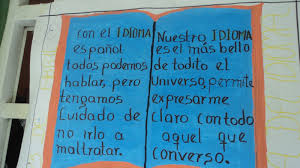 Con el IDIOMA
español
todos podemos
hablar, pero
tengamos
Cuidado de
no irlo a
maltratar.
Nuestro IDIOMA
es el más bello
de todito el
Universo, permite
expresarme
claro con todo
aquel que
converso.